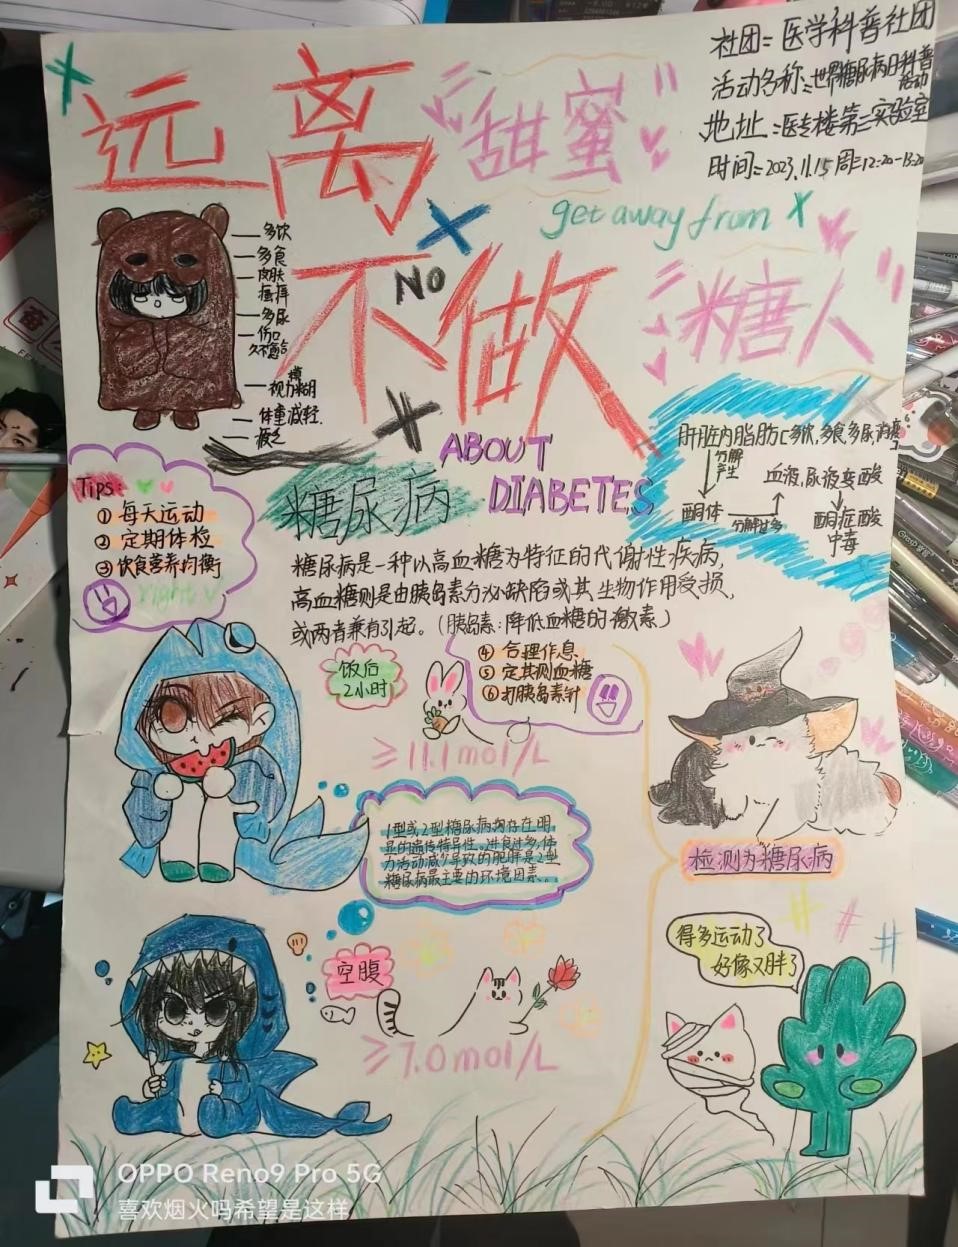 社团=医学科普社团
活动名称:世界糖尿病日科普
活动
地址:医专楼第三实验室
时间=2023.11.15 周三12:20-13:20
远离甜蜜
get away from
不做糖人
NO
多饮
多食
皮肤
瘙痒
多尿
伤口
久不愈合
视力模糊
体重减轻
疲乏
ABOUT
DIABETES
糖尿病
Tips:
①每天运动
②定期体检
③饮食营养均衡
right
肝脏内脂肪(多饮,多食多尿
分解
产生
酮体
分解过多
血液,尿液变酸
酮症酸
中毒
糖尿病是一种以高血糖为特征的代谢性疾病,
高血糖则是由胰岛素分泌缺陷或其生物作用受损,
或两者兼有引起。(胰岛素:降低血糖的激素)
④合理作息
⑤定期测血糖
⑥打胰岛素针
饭后
2小时
≥11.1mol/L
1型或2型糖尿病均存在明
显的遗传特异性。进食过多,体
力活动减少导致的肥胖是2型
糖尿病最主要的环境因素。
检测为糖尿病
空腹
≥7.0mol/L
得多运动了
好像又胖了
OPPO Reno9 Pro 5G
喜欢烟火吗希望是这样